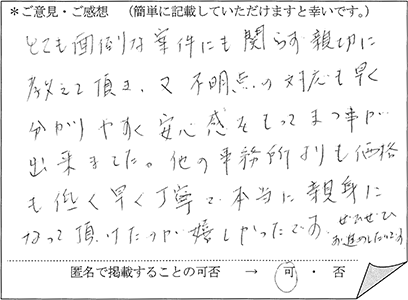 *ご意見・ご感想　(簡単に記載していただけますと幸いです。)
とても面倒な案件にも関らず親切に
教えて頂き、又 不明点の対応も早く
分かりやすく安心感をもってまつ事が
出来ました。他の事務所よりも価格
も低く早く丁寧で本当に親身に
なって頂けたのが嬉しかったです。ぜひぜひ
お進めしたいです
匿名で掲載することの可否　→　可 ・ 否